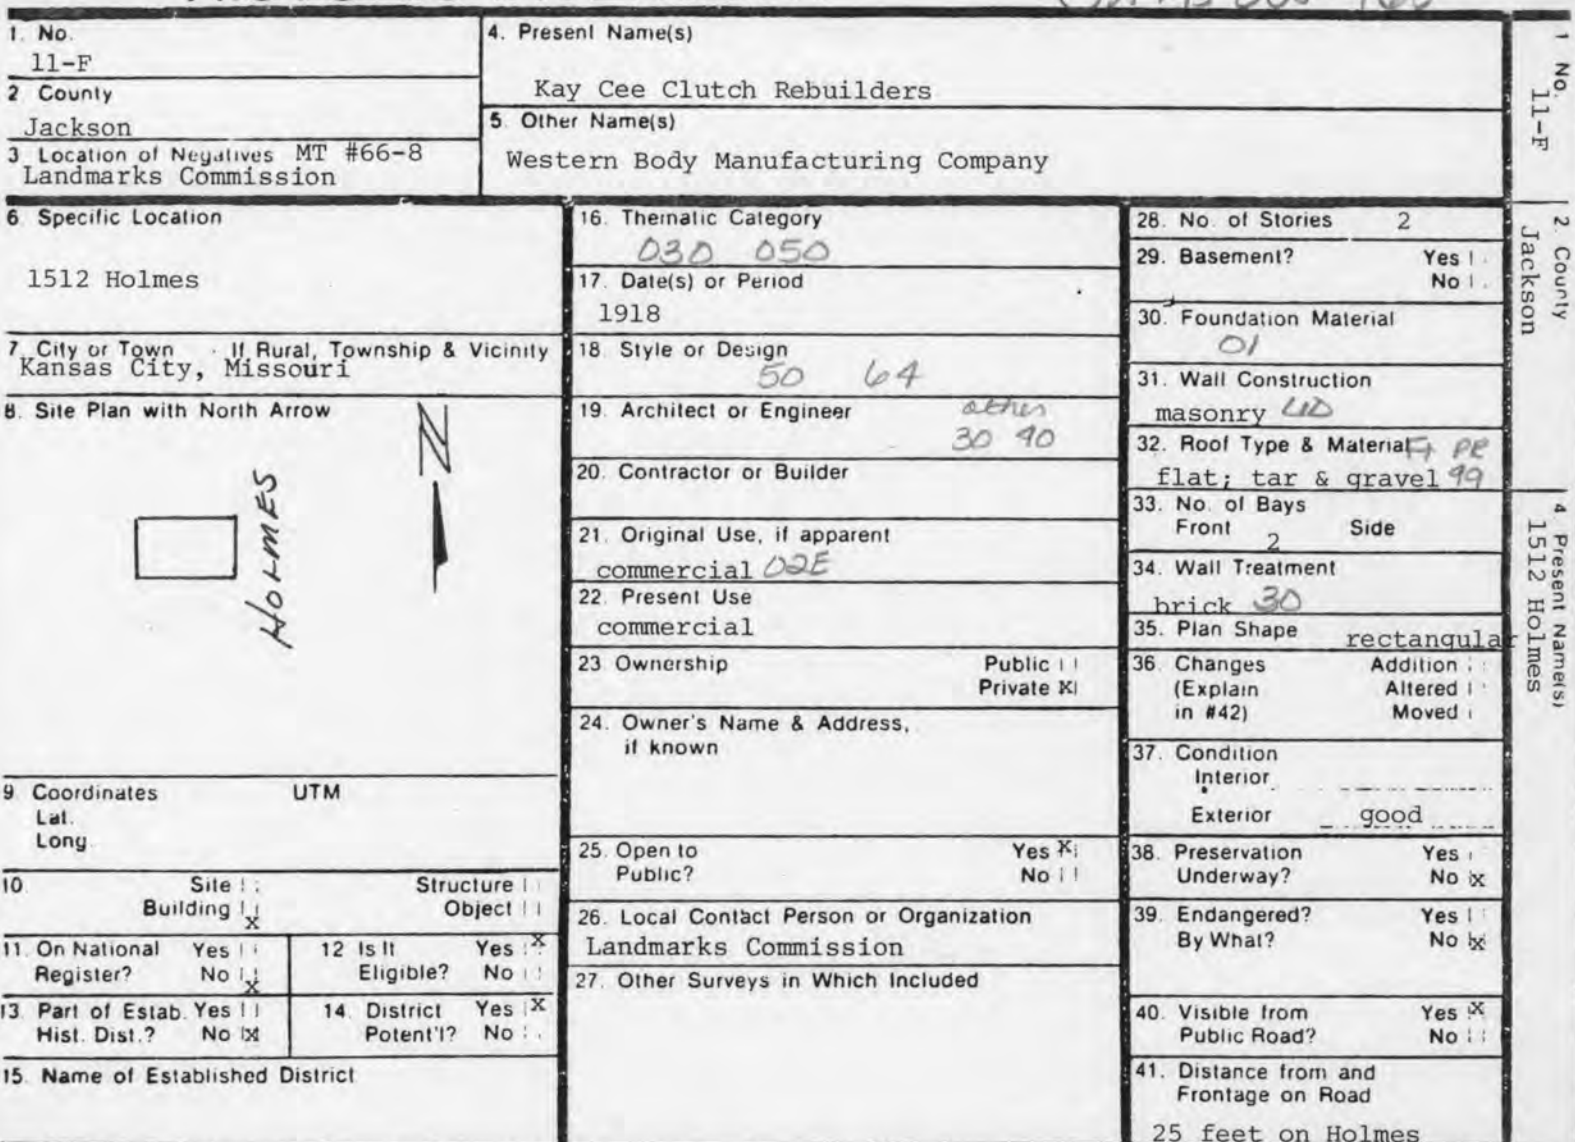 1. No.
11-F
2 County
Jackson
3 Location of Negatives MT #66-8
Landmarks Commission
4. Present Name(s)
Kay Cee Clutch Rebuilders
5. Other Name(s)
Western Body Manufacturing Company
6. Specific Location
1512 Holmes
7. City or Town If Rural, Township & Vicinity
Kansas City, Missouri
8. Site Plan with North Arrow
N
HOLMES
9 Coordinates UTM
Lat.
Long.
10. Site Structure
Building X Object
11. On National Yes
Register? No X
12 Is It Yes X
Eligible? No
13. Part of Estab. Yes
Hist. Dist.? No X
14. District Yes X
Potent'l? No
15. Name of Established District
16. Thematic Category
030 050
17. Date(s) or Period
1918
18. Style or Design
50 64
19. Architect or Engineer other
30 90
20. Contractor or Builder
21. Original Use, if apparent
commercial 02E
22. Present Use
commercial
23. Ownership Public
Private X
24. Owner's Name & Address,
if known
25. Open to Yes X
Public? No
26. Local Contact Person or Organization
Landmarks Commission
27. Other Surveys in Which Included
28. No. of Stories 2
29. Basement? Yes
No
30. Foundation Material
01
31. Wall Construction
masonry
32. Roof Type & Material
flat; tar & gravel 99
33. No. of Bays
Front 2 Side
34. Wall Treatment
brick 30
35. Plan Shape rectangular
36. Changes Addition
(Explain Altered
in #42) Moved
37. Condition
Interior
Exterior good
38. Preservation Yes
Underway? No X
39. Endangered? Yes
By What? No X
40. Visible from Yes X
Public Road? No
41. Distance from and
Frontage on Road
25 feet on Holmes
1 No.
11-F
2. County
Jackson
4 Present Name(s)
1512 Holmes